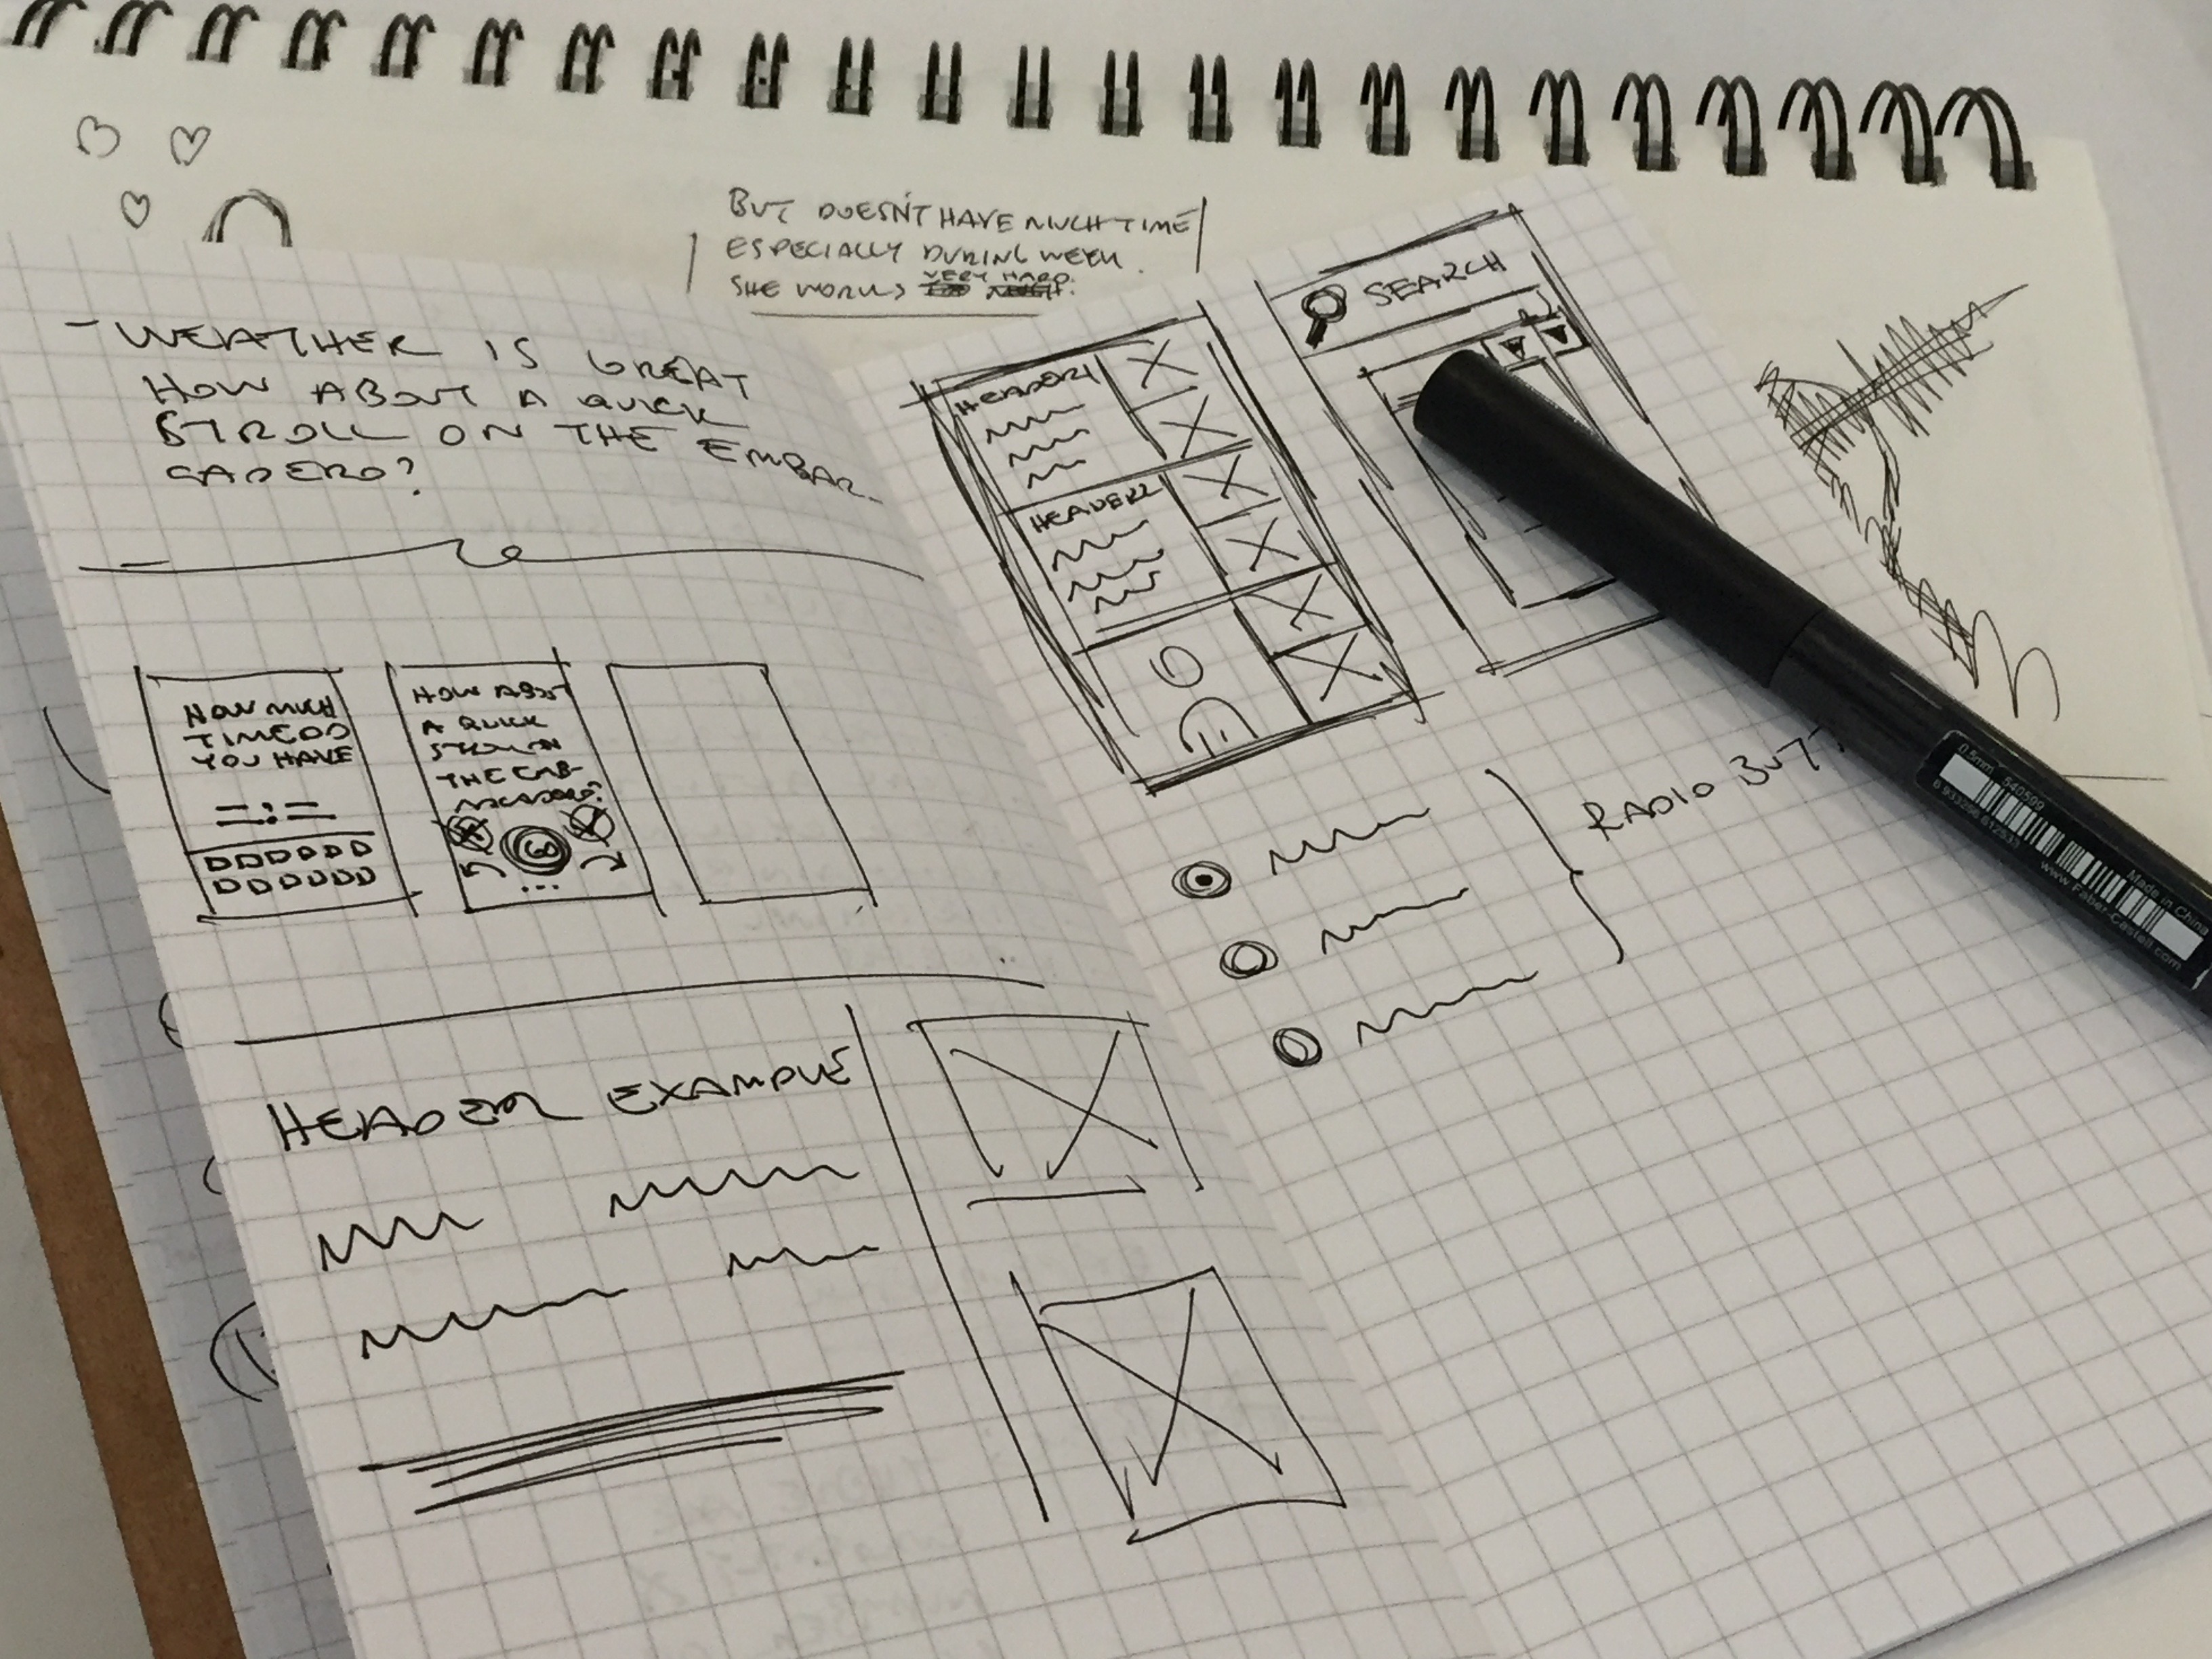 BUT DOESN'T HAVE MUCH TIME
ESPECIALLY DURING WEEK.
SHE WORKS VERY HARD.
- WEATHER IS GREAT
HOW ABOUT A QUICK
STROLL ON THE EMBAR-
CADERO?
HOW MUCH
TIME DO
YOU HAVE
HOW ABOUT
A QUICK
STROLL ON
THE EMB-
ARCADERO?
GO
...
HEADER EXAMPLE
HEADER1
HEADER2
SEARCH
RADIO BUTT
0.5mm 540599
Made in China
www.Faber-Castell.com